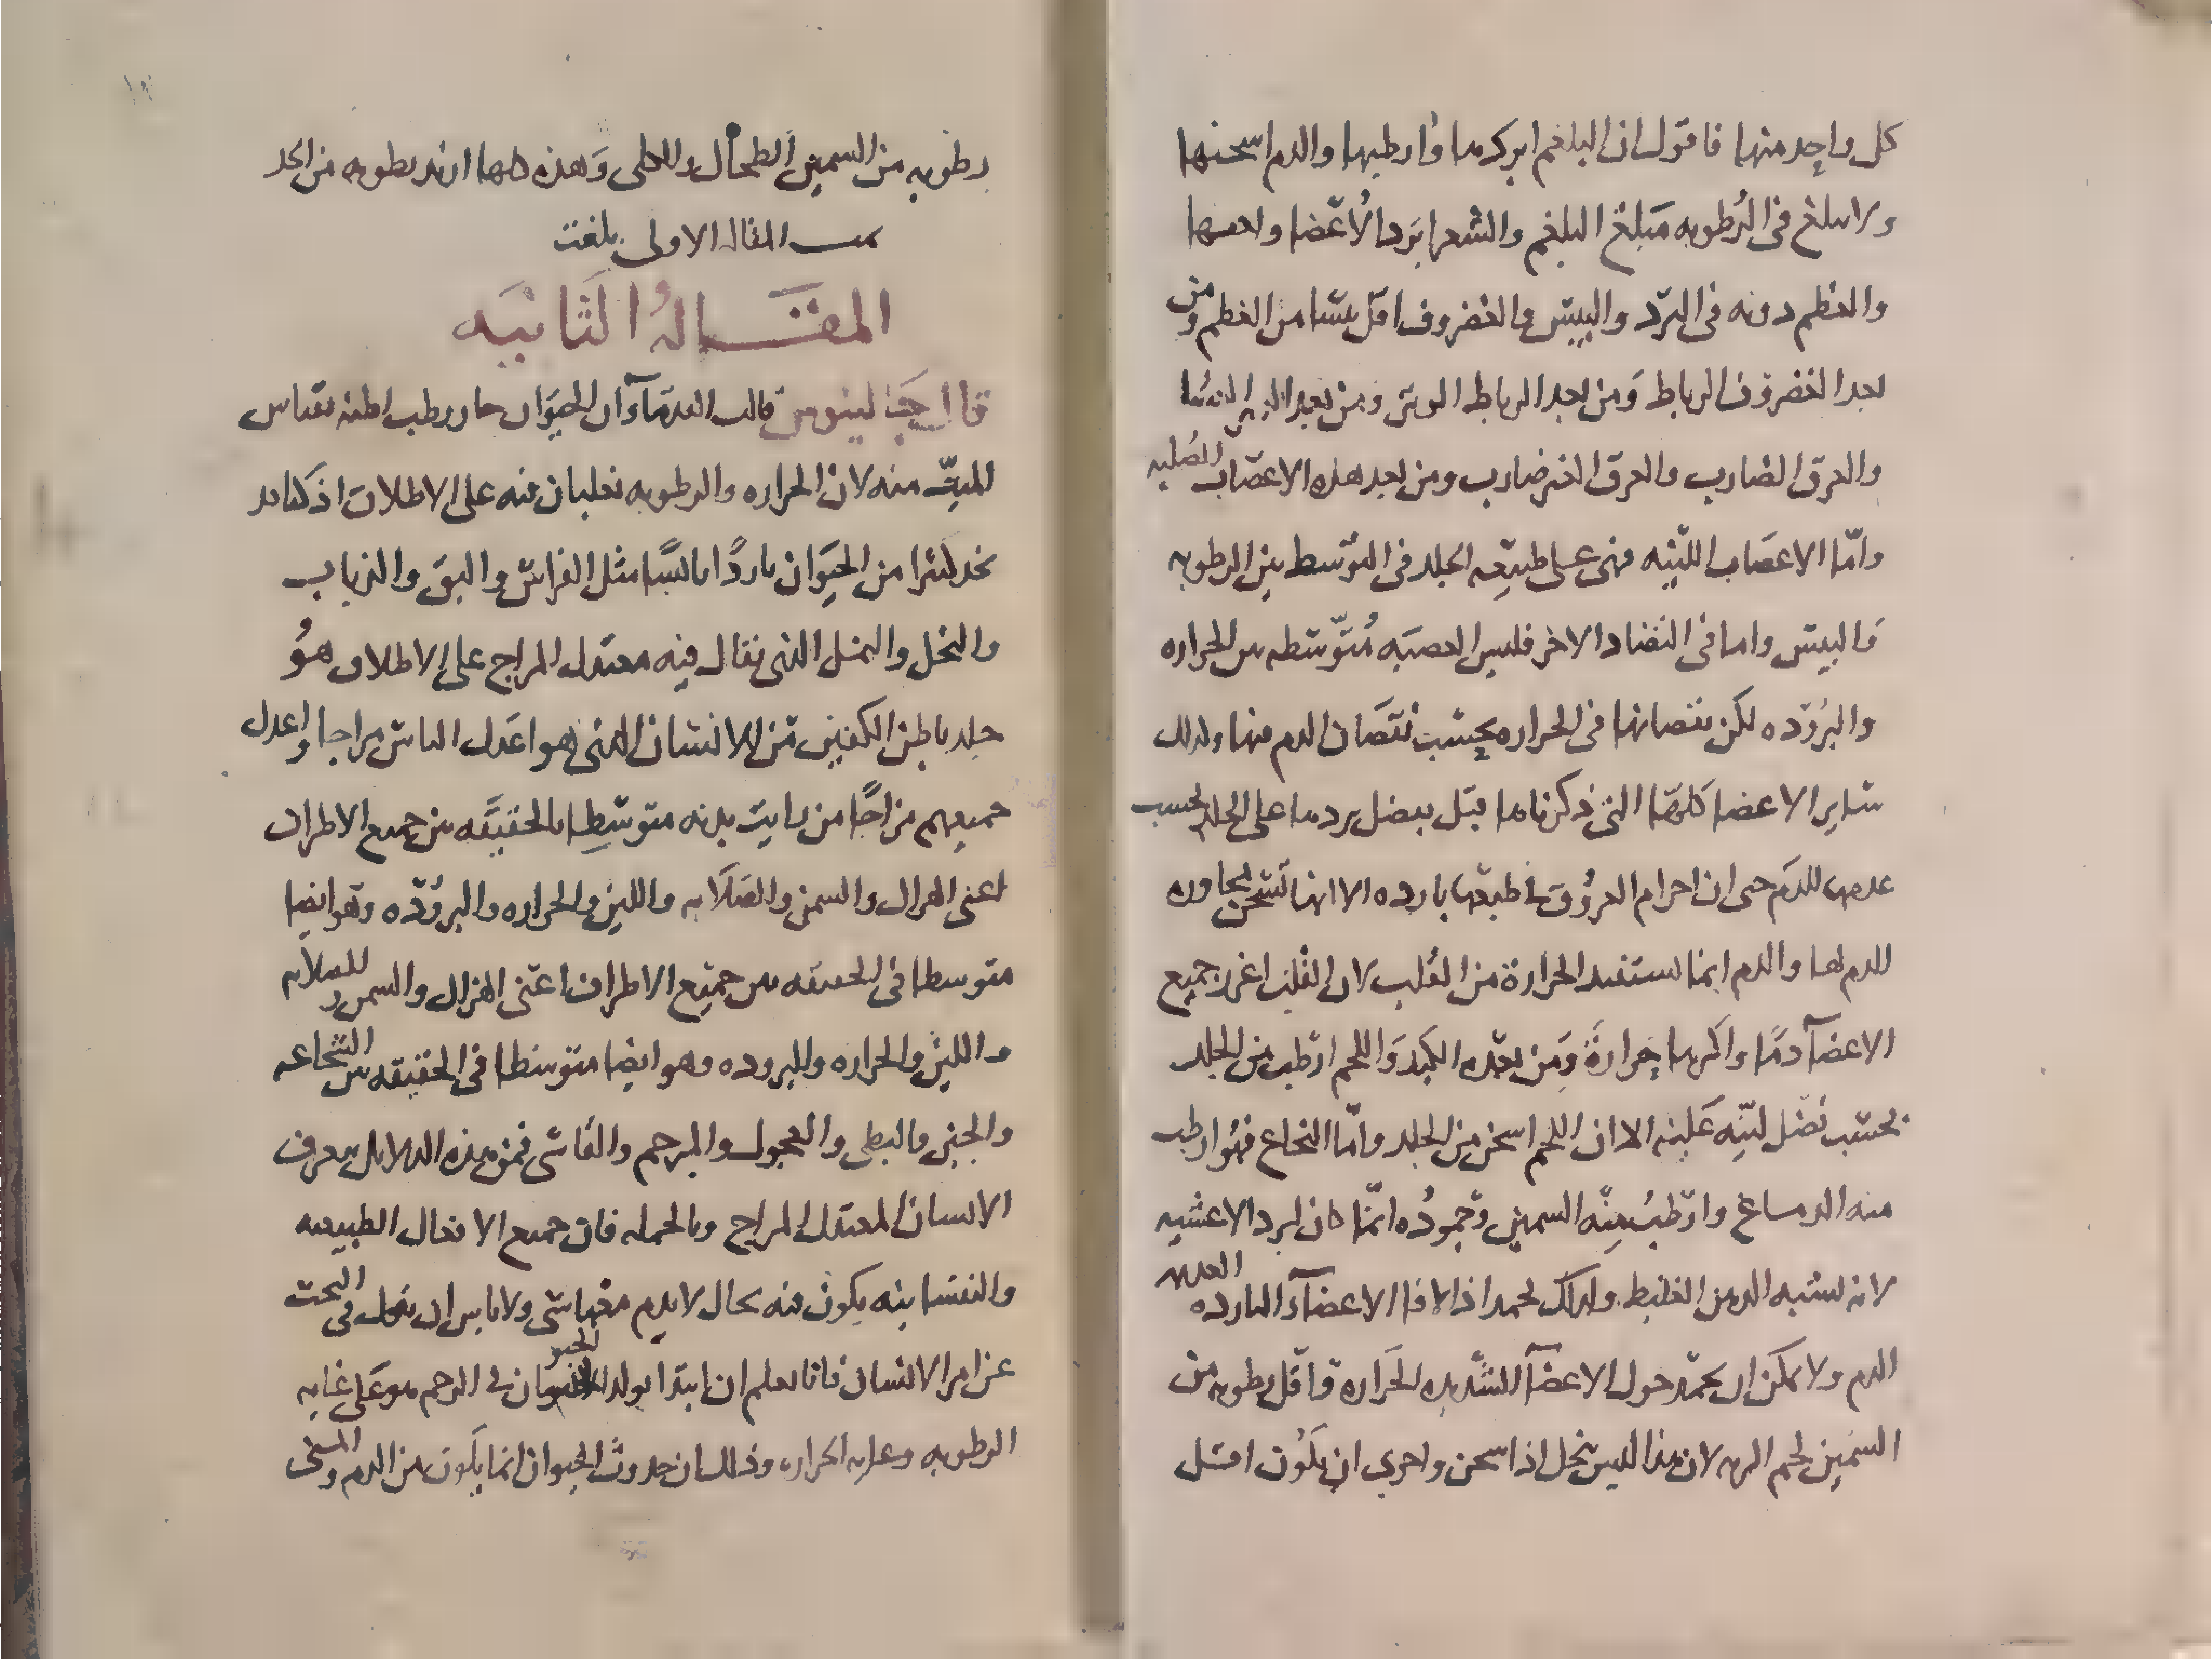 كل واحد منها فاقول ان البلغم ابردها وارطبها والدم اسخنها
ولا يبلغ فى الرطوبه مبلغ البلغم والشعر ابرد الاعضا وايبسها
والعظم دونه فى البرد واليبس والغضروف اقل يبسا من العظم ومن
بعد الغضروف الرباط ومن بعد الرباط الوتر ومن بعد الوتر الغشا
والعرق الضارب والعرق الغير ضارب ومن بعد هذه الاعصاب الصلبه
وامّا الاعصاب اللينه فهى على طبيعه الجلد فى التوسط بين الرطوبه
واليبس واما فى التضاد الاخر فليس العصبه متوسطه بين الحراره
والبروده لكن نقصانها فى الحراره بحسب نقصان الدم منها وكذلك
ساير الاعضا كلها التى ذكرناها قبل بفضل بردها على الجلد بحسب
عدمها للدم حتى ان اجرام العروق فى طبعها بارده الا انها تسخن بمجاوره
الدم لها والدم انما يستفيد الحرارة من القلب لان القلب اغزر جميع
الاعضآ دمًا واكثرها حرارةً ومن بعده الكبد واللحم ارطب من الجلد
بحسب فضل لينه عليه الا ان اللحم اسخن من الجلد وامّا النخاع فهو ارطب
منه الدماغ وارطب منه السمين وجموده انما كان لبرد الاغشيه
لانه يشبه الدهن الغليظ ولذلك يجمد اذا لاقا الاعضآ البارده العديمه
الدم ولا يمكن ان يجمد حول الاعضآ الشديده الحراره واقل رطوبه من
السمين لحم الريه لان هذا ليس ينحل اذا سخن واحرى ان يكون اقل
رطوبه من السمين الطحال والكلى وهذه كلها ازيد رطوبه من الجلد
تمت المقاله الاولى بلغت
المقــاله الثانيه
قال جالينوس قالت القدمآ ان الحيوان حار رطب اظنه بقياس
الميّت منه لان الحراره والرطوبه تغلبان فيه على الاطلاق اذ كنا قد
نجد كثيرا من الحيوان باردًا يابسًا مثل الفراش والبق والذباب
والنحل والنمل الذى يقال فيه معتدل المزاج على الاطلاق هو
جلد باطن الكفين من الانسان الذى هو اعدل الناس مزاجا واعدل
جميعهم مزاجًا من رايت بدنه متوسطا بالحقيقه بين جميع الاطراف
اعنى الهزال والسمن والصلابه واللين والحراره والبروده وهو ايضا
متوسطا فى الحقيقه بين جميع الاطراف اعنى الهزال والسمن والصلابه
واللين والحراره والبروده وهو ايضا متوسطا فى الحقيقه بين الشجاعه
والجبن والبطى والعجول والمرحم والقاسى فمن هذه الدلايل يعرف
الانسان المعتدل المزاج وبالجمله فان جميع الافعال الطبيعيه
والنفسانيه يكون فيه بحال لا يذم معها شى ولا باس ان نعدل فى البحث
عن امر الانسان فانا نعلم ان ابتدا تولد الحيوان فى الرحم هو على غايه
الرطوبه وغايه الحراره وذلك ان حدوث الحيوان انما يكون من الدم والمنى